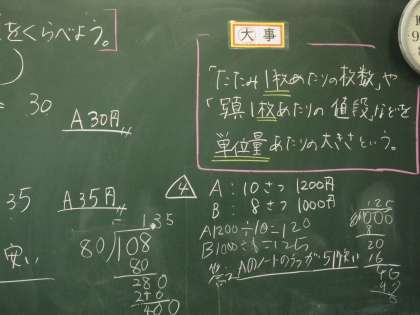 をくらべよう。
= 30
A 30円
35
A 35円
安い
大事
「たたみ1枚あたりの枚数」や
「写真1枚あたりの値段」などを
単位量あたりの大きさという。
4
A : 10さつ 1200円
B : 8さつ 1000円
A1200÷10=120
B1000÷8=125
Aのノートのほうが5円安い
1.35
80)108
80
280
240
400
125
8)1000
8
20
16
40